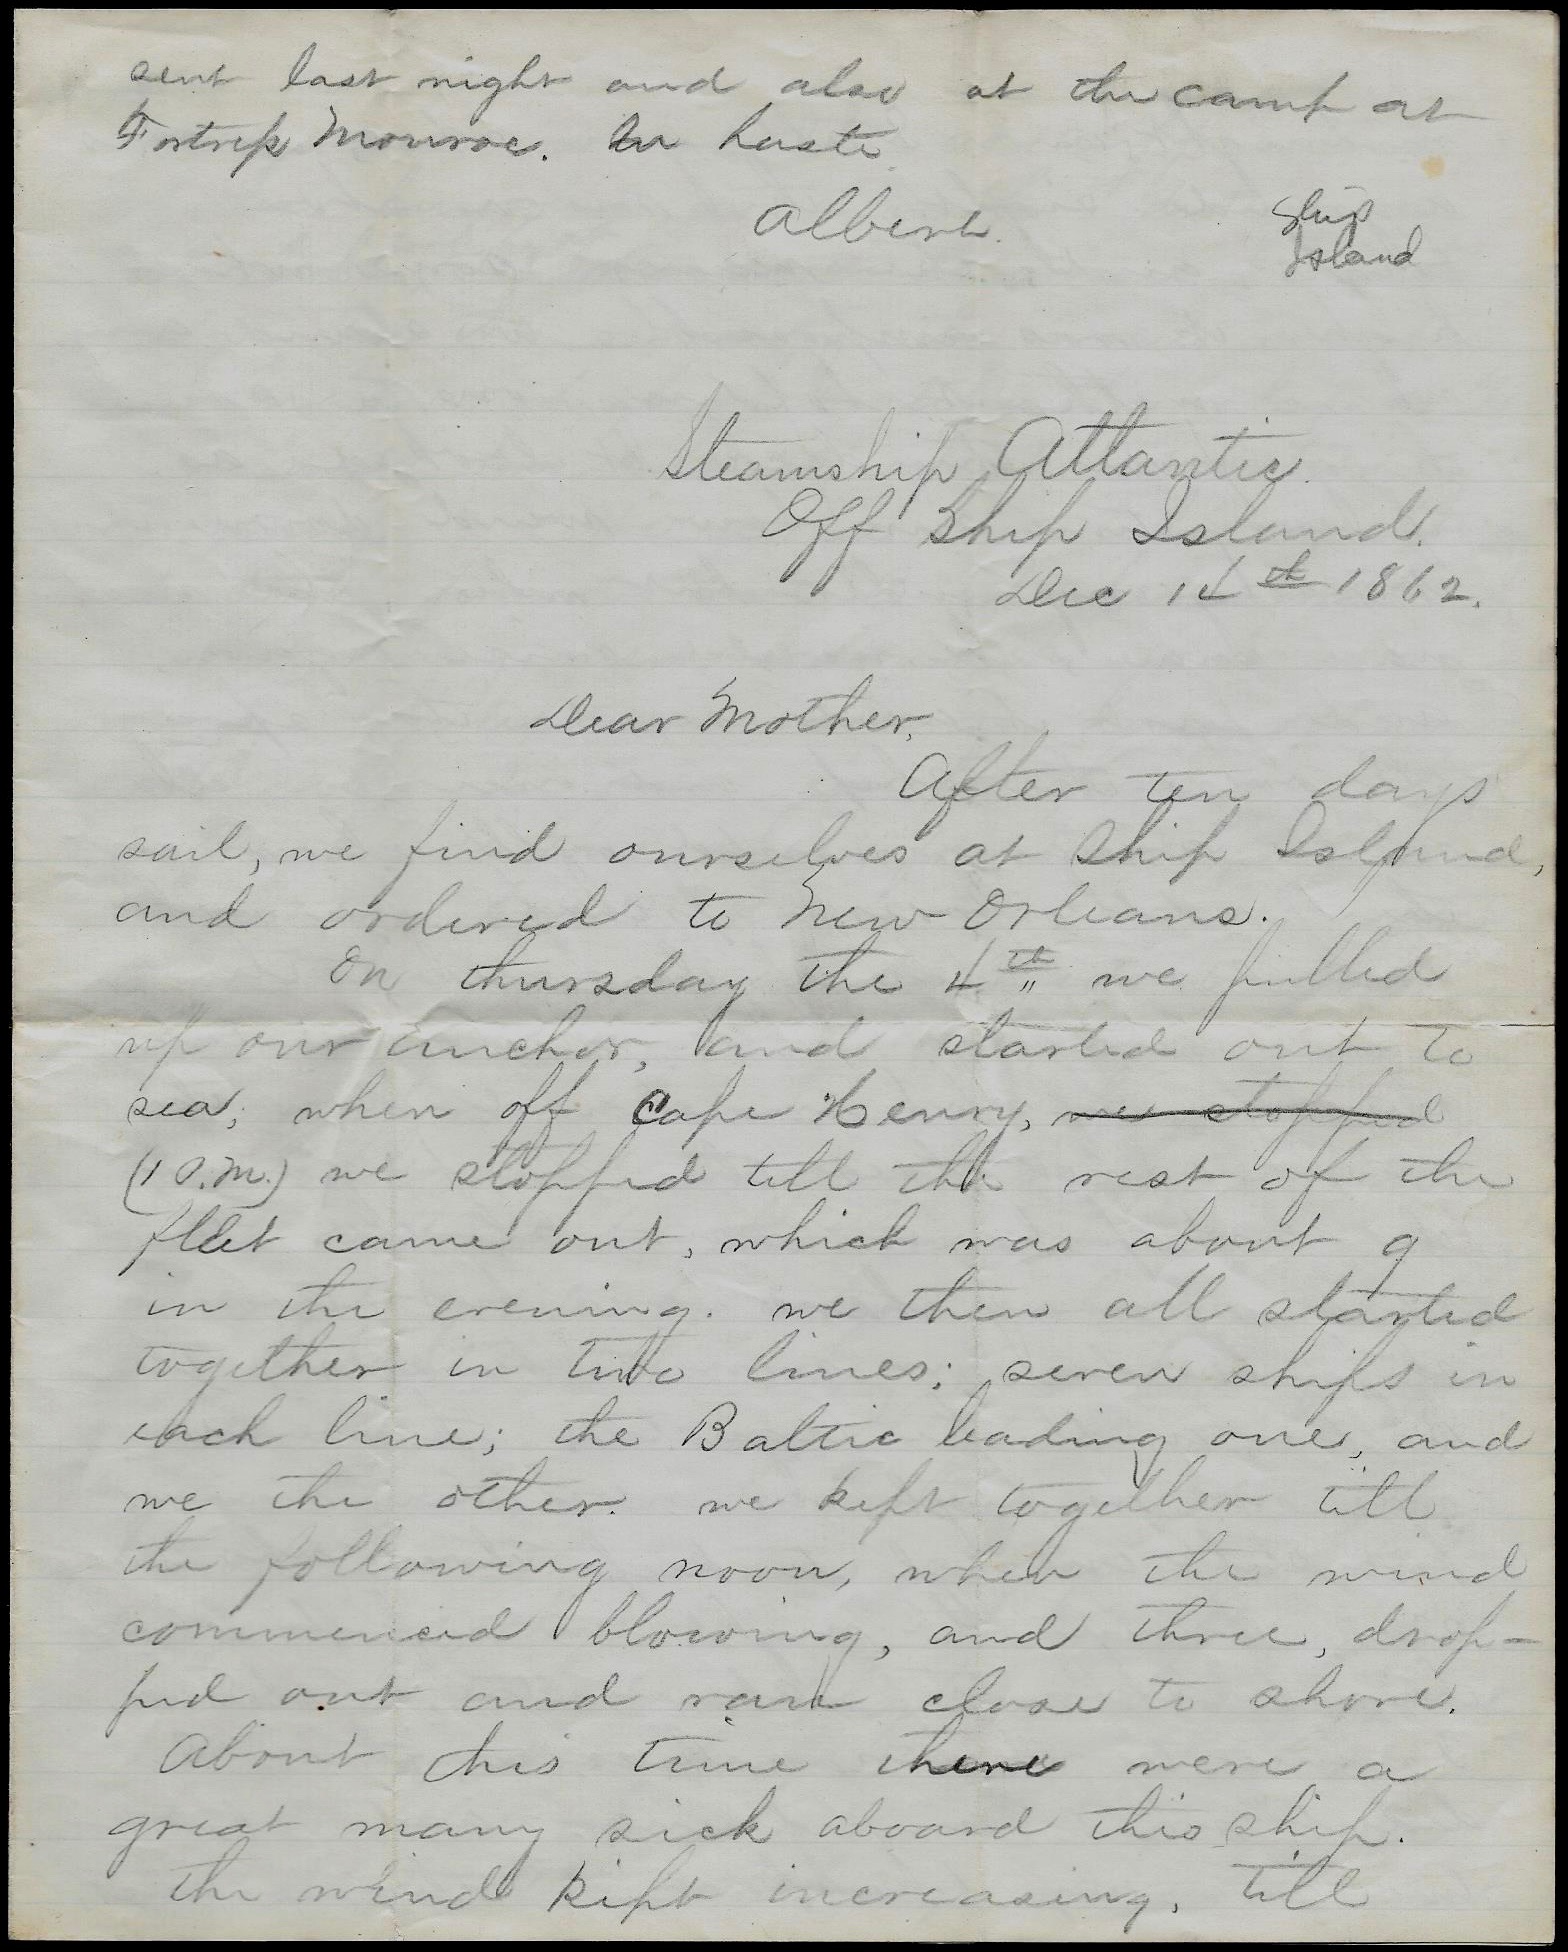 sent last night and also at the camp at
Fortress Monroe. In haste
Albert.
Ship
Island
Steamship Atlantic.
Off Ship Island.
Dec 14th 1862.
Dear Mother,
After ten days
sail, we find ourselves at Ship Island,
and ordered to New Orleans.
On thursday the 4th we pulled
up our anchor, and started out to
sea; when off Cape Henry, we stopped
(1 P.M.) we stopped till the rest of the
fleet came out, which was about 9
in the evening. we then all started
together in two lines; seven ships in
each line; the Baltic leading one, and
we the other. we kept together till
the following noon, when the wind
commenced blowing, and three, drop-
ped out and ran close to shore.
About this time there were a
great many sick aboard this ship.
The wind kept increasing, till